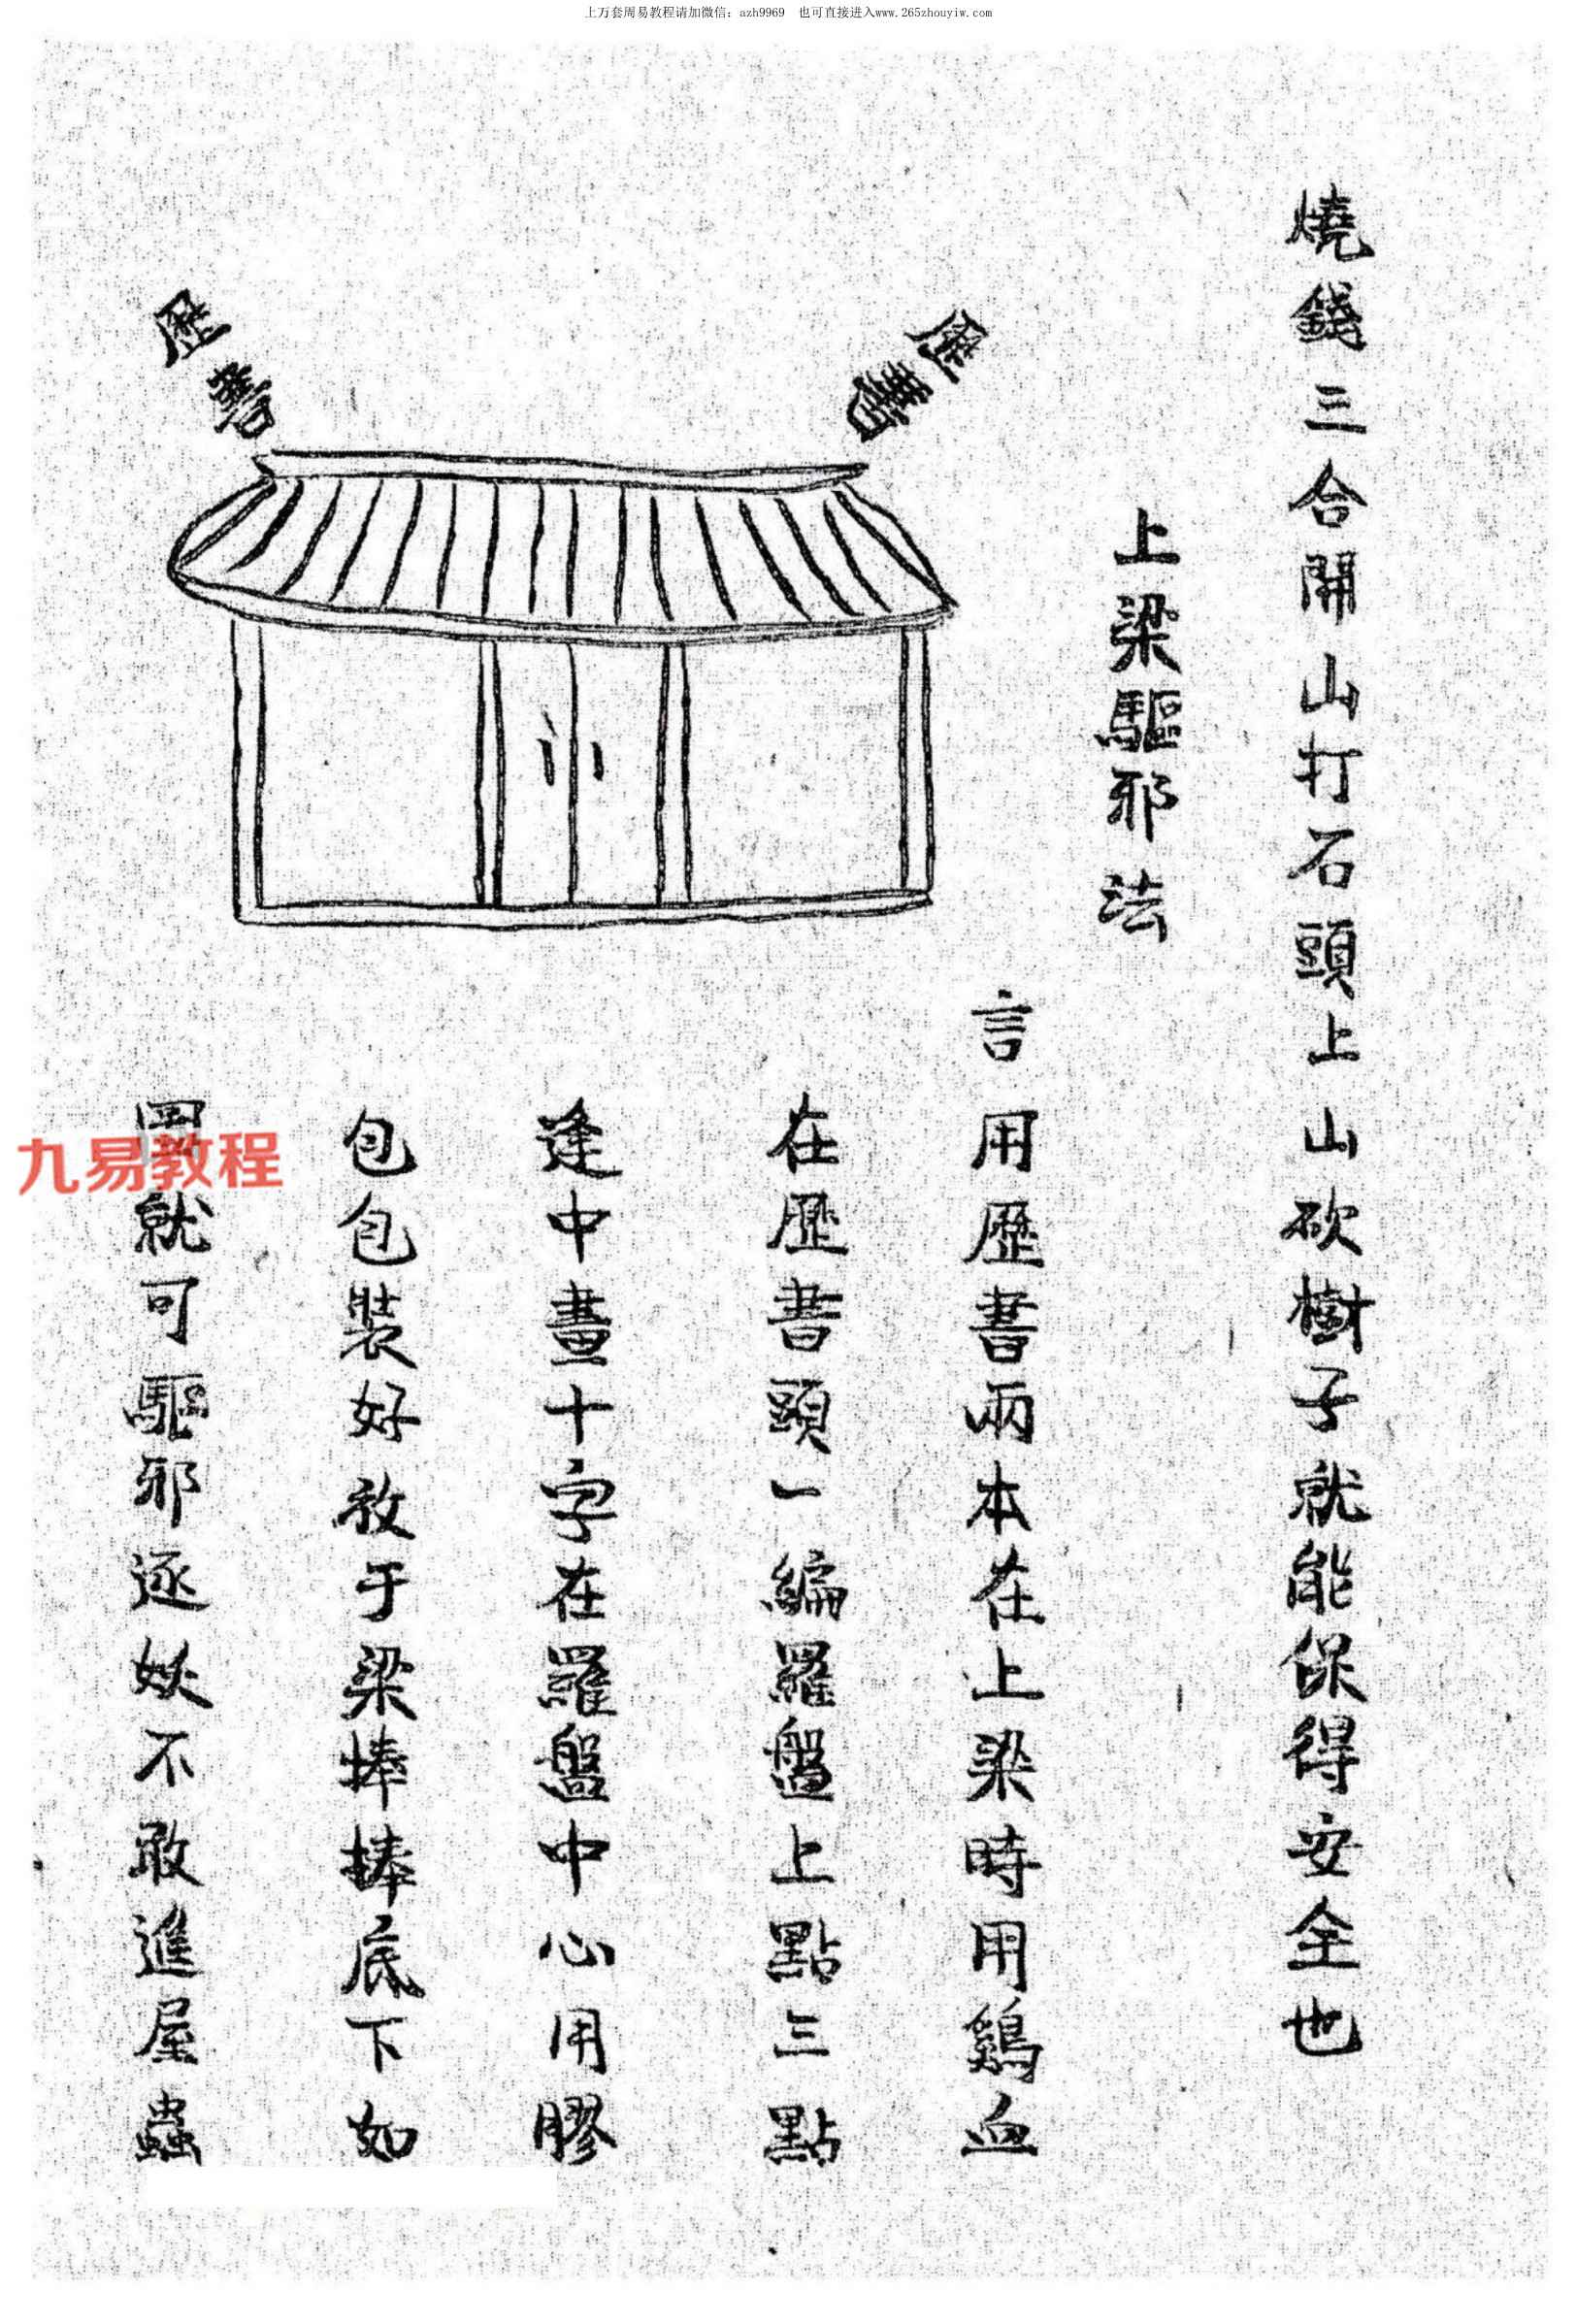 上万套周易教程请加微信：azh9969 也可直接进入www.265zhouyiw.com
燒錢三合開山打石頭上山砍樹子就能保得安全也
上梁驅邪法
歷書
歷書
言用歷書兩本在上梁時用鷄血
在歷書頭一編羅盤上點三點
逢中畫十字在羅盤中心用膠
包包裝好放于梁捧捧底下如
圖就可驅邪逐妖不敢進屋蟲
九易教程